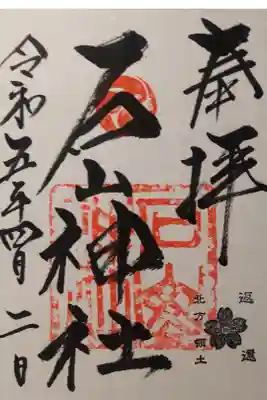 奉拝
石山神社
令和五年四月二日
返還
北方領土